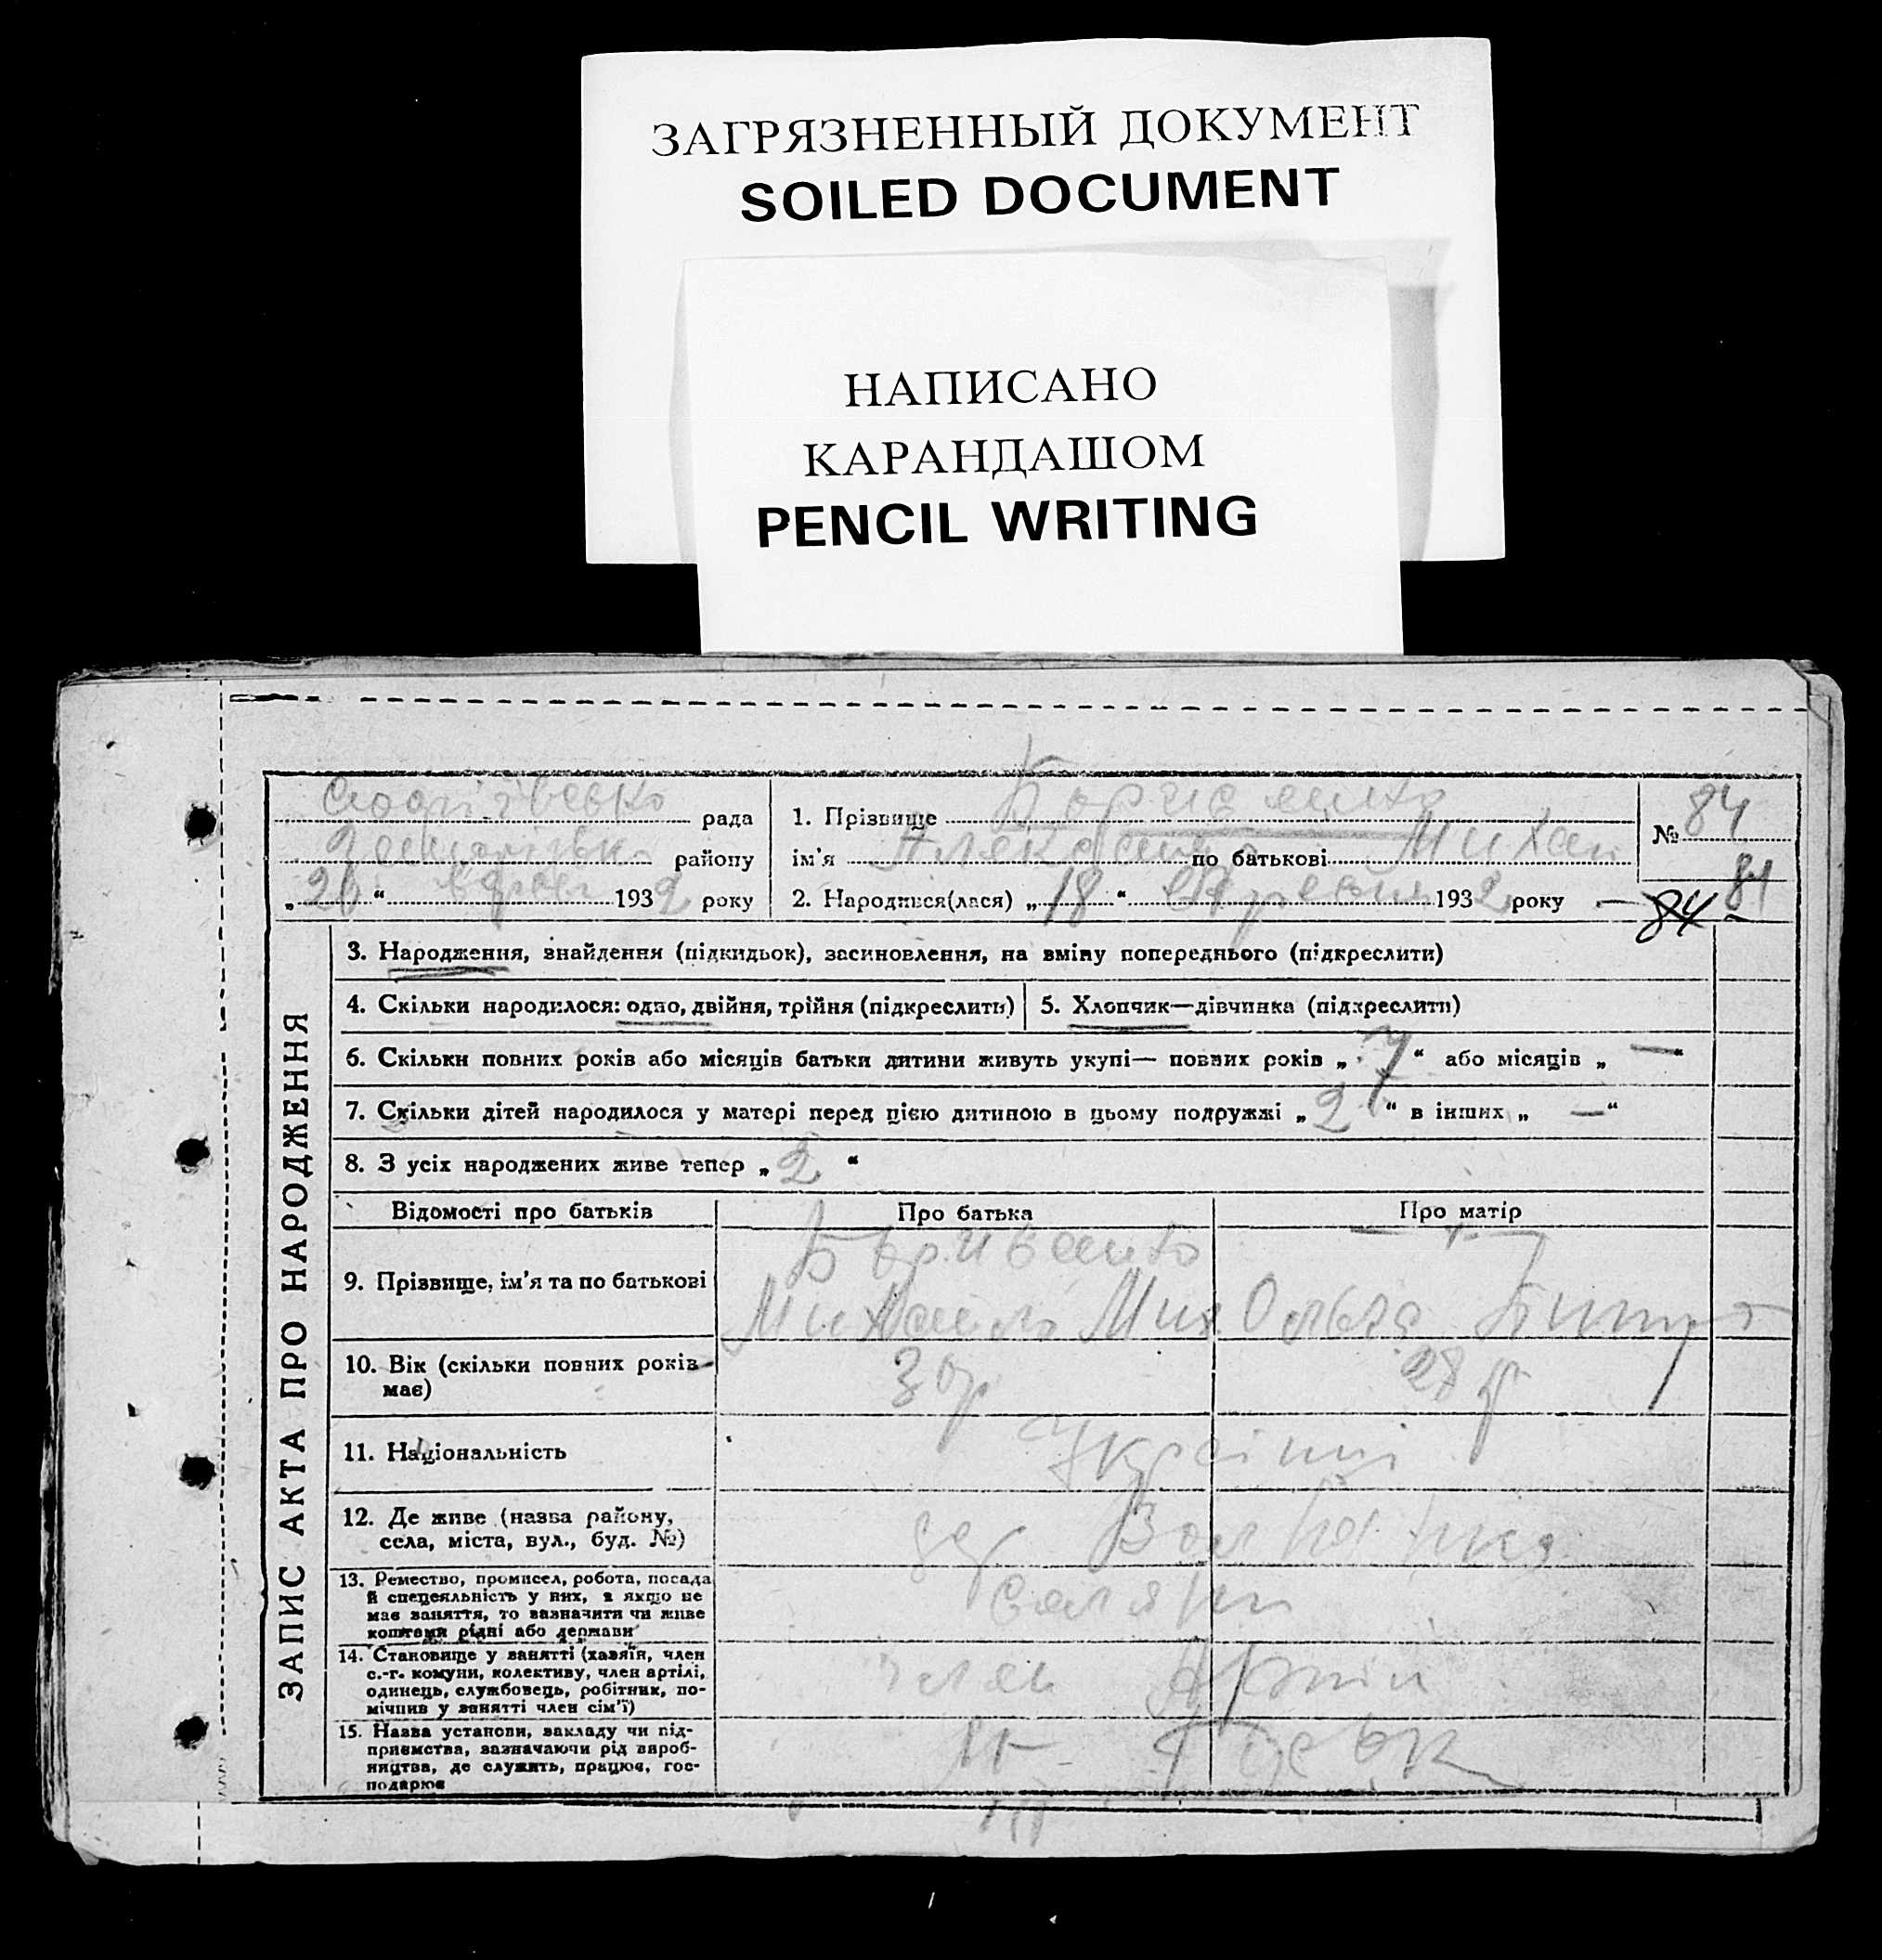 ЗАГРЯЗНЕННЫЙ ДОКУМЕНТ
SOILED DOCUMENT
НАПИСАНО
КАРАНДАШОМ
PENCIL WRITING
рада
району
„20“ 1932 року
1. Прізвище
ім'я по батькові Михай
2. Народився(лася) „18“ 1932 року
№ 84
81
84
ЗАПИС АКТА ПРО НАРОДЖЕННЯ
3. Народження, знайдення (підкидьок), засиновлення, на зміну попереднього (підкреслити)
4. Скільки народилося: одно, двійня, трійня (підкреслити)
5. Хлопчик—дівчинка (підкреслити)
6. Скільки повних років або місяців батьки дитини живуть укупі— повних років „7“ або місяців „—“
7. Скільки дітей народилося у матері перед цією дитиною в цьому подружжі „2“ в інших „—“
8. З усіх народжених живе тепер „2“
Відомості про батьків
Про батька
Про матір
9. Прізвище, ім'я та по батькові
Михайло Мих. Ольга
10. Вік (скільки повних років
має)
30р
28 р
11. Національність
Українці
12. Де живе (назва району,
села, міста, вул., буд. №)
13. Ремество, промисел, робота, посада
й спецеяльність у них, а якщо не
має заняття, то зазначити чи живе
коштами рідні або держави
селяни
14. Становище у занятті (хазяїн, член
с.-г. комуни, колективу, член артілі,
одинець, службовець, робітник, по-
мічник у занятті член сім'ї)
член Артіли
15. Назва установи, закладу чи під-
приємства, зазначаючи рід вироб-
ництва, де служить, працює, гос-
подарює